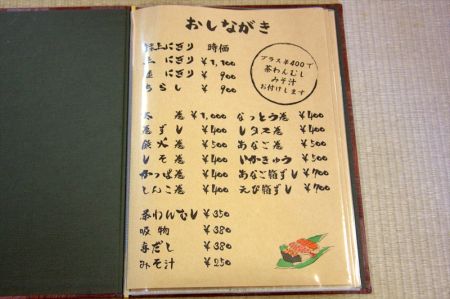 おしながき
特上にぎり 時価
上にぎり ¥1,700
並にぎり ¥900
ちらし ¥900
プラス¥400で
茶わんむし
みそ汁
お付けします
太巻 ¥1,000
巻ずし ¥400
鉄火巻 ¥400
しそ巻 ¥400
かっぱ巻 ¥400
しんこ巻 ¥400
なっとう巻 ¥400
レタス巻 ¥400
あなご巻 ¥500
いかきゅう ¥500
あなご箱ずし ¥700
えび箱ずし ¥700
茶わんむし ¥350
吸物 ¥380
赤だし ¥380
みそ汁 ¥250